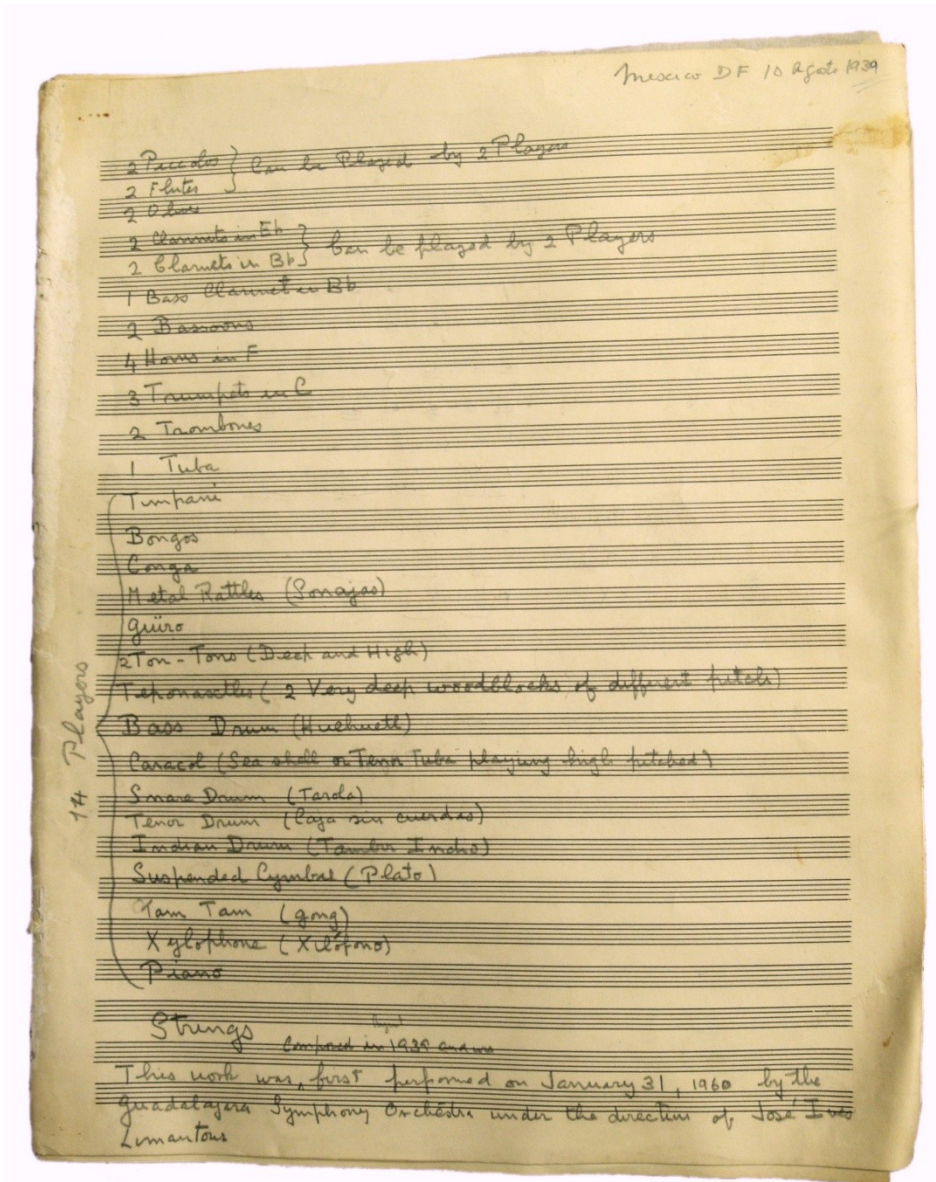 Mexico DF 10 Agosto 1939
2 Piccolos } Can be Played by 2 Players
2 Flutes
2 Oboes
2 Clarinets in Eb } Can be played by 2 Players
2 Clarinets in Bb
1 Bass Clarinet in Bb
2 Bassoons
4 Horns in F
3 Trumpets in C
2 Trombones
1 Tuba
14 Players
Timpani
Bongos
Conga
Metal Rattles (Sonajas)
Güiro
2 Ton-Tons (Deep and High)
Teponaxtles (2 Very deep woodblocks of different pitch)
Bass Drum (Huehuetl)
Caracol (Sea shell or Tenor Tuba playing high pitched)
Snare Drum (Tarola)
Tenor Drum (Caja sin cuerdas)
Indian Drum (Tambor Indio)
Suspended Cymbal (Plato)
Tam Tam (gong)
Xylophone (Xilófono)
Piano
Strings
Composed in 1939 and was
This work was first performed on January 31, 1960 by the
Guadalajara Symphony Orchestra under the direction of José Ives
Limantour